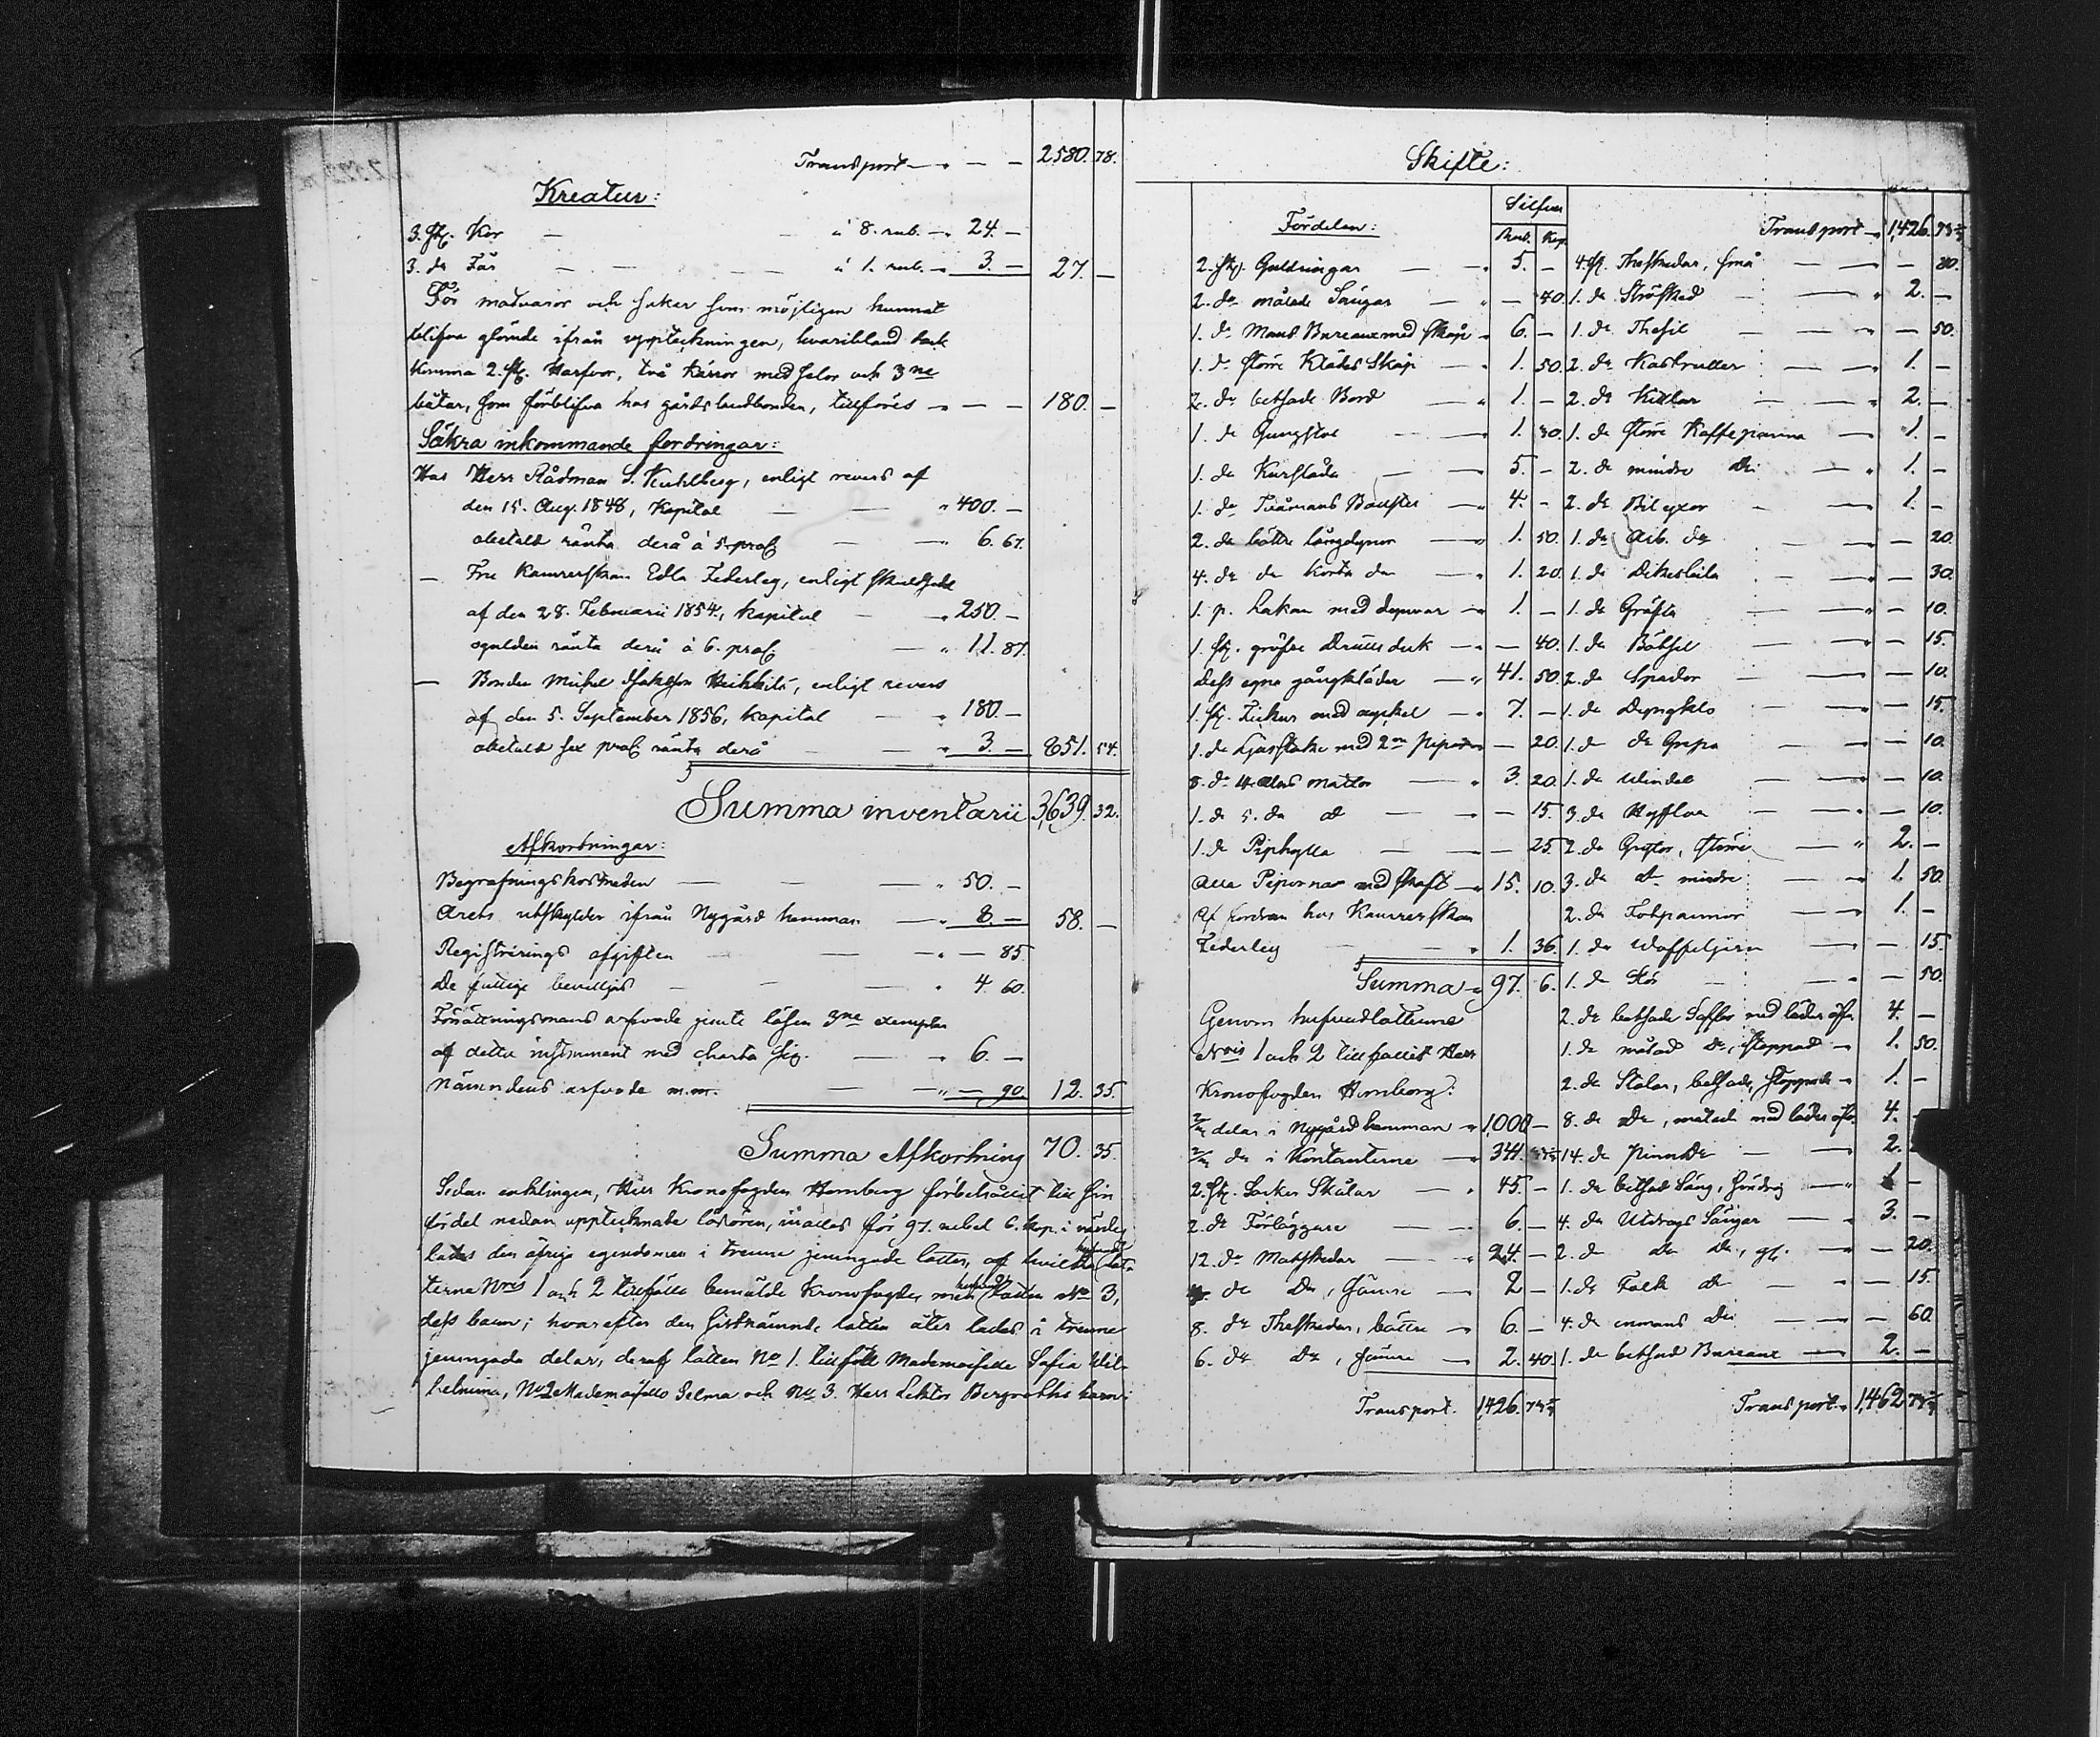 Transport — — 2580. 78.
Kreatur:
3. st. Kor — — à 8. rub. — 24. —
3. do Får — — — à 1. rub. — 3. — 27. —
För matvaror och saker som möjligen kunnat
blifva glömde ifrån uppteckningen, hvaribland
komma 2. st. Harfvor, två kärror med selar och 3ne
båtar, som förblifva hos gårdslandbonden, tillföres — — 180. —
Säkra inkommande fordringar:
Hos Herr Rådman S. Kuhlberg, enligt revers af
den 15. Aug. 1848, Kapital — — " 400. —
obetald ränta derå à 5. proc — — " 6. 67.
— Fru Kamrerskan Edla Federley, enligt skuldsedel
af den 28. Februarii 1854, kapital — " 250. —
ogulden ränta derå à 6. proc — " 11. 87.
— Bonden Michel Isaksson Heikkilä, enligt revers
af den 5. September 1856, kapital — " 180. —
obetald sex proc ränta derå — — " 3. — 851. 54.
Summa inventarii 3,639. 32.
Afkortningar:
Begrafningskostnaden — — — " 50. —
Årets utskylder ifrån Nygård hemman — " 8. — 58. —
Registrerings afgiften — — — 85.
De fattige beviljas — — — " 4. 60.
Förrättningsmans arfvode jemte lösen 3ne exemplar
af detta instrument med charta sig. — " 6. —
Nämndens arfvode m.m. — — " — 90. 12. 35.
Summa Afkortning 70. 35.
Sedan enklingen, Herr Kronofogden Hornborg förbehållit till sin
fördel nedan upptecknade lösören, inalles för 97. rubel 6. kop. i värde,
lades den öfriga egendomen i trenne jemngoda lotter, af hvilka hufvudlot-
terna Nris 1 och 2 tillföllo bemälde Kronofogde, men hufvudlotten No 3,
dess barn; hvarefter den sistnämnde lotten åter lades i trenne
jemngoda delar, deraf lotten No 1. tillföll Mademoiselle Sofia Wil-
helmina, No 2 Mademoiselle Selma och No 3. Herr Lektor Bergroths barn:
Skifte:
Fördelen: Silfver
Rub. Kop.
2. st. Guldringar — " 5. —
2. do målade Sängar — " — 40.
1. do Mans Bureau med skåp " 6. —
1. do större Kläds Skåp — " 1. 50.
2. do betsade Bord — " 1. —
1. do Gungstol — — 1. 30.
1. do Kurslåda — — 5. —
1. do Tvåmans Bolster — 4. —
2. do bättre långdynor — " 1. 50.
4. do do korta do — " 1. 20.
1. p. Lakan med dynvar — " 1. —
1. st. gröfre Drälls duk — " — 40.
Dess egna gångkläder — " 41. 50.
1. st. Fickur med nyckel — " 7. —
1. do Ljusstake med 2ne Pipor — 20.
8. do 4. alns mattor — " 3. 20.
1. do 5. do do — — 15.
1. do Piphylla — — 25.
Alla Piporna med skaft — " 15. 10.
Af fordran hos Kamrerskan
Federley — " 1. 36.
Summa " 97. 6.
Genom hufvudlotterne
Nris 1 och 2 tillfallit Herr
Kronofogden Hornborg:
2/3 delar i Nygård hemman " 1,000 —
2/3 do i Kontanterne — 344.
2. st. Socker Skålar — " 45. —
2. do Förläggare — 6. —
12. do Matskedar — " 24. —
do do, sämre — 2 —
8. do Theskedar, bättre — 6. —
6. do do, sämre — 2. 40.
Transport. 1,426. 73
Transport " 1,426. 73
4. st. Theskedar, små — — 80.
1. do Ströskked — " 2. —
1. do Thesil — " — 50.
2. do Kastruller — — 1. —
2. do Kittlar — " 2. —
1. do större Kaffepanna — 1. —
2. do mindre do — " 1. —
2. do Bil yxor — — 1. —
1. do Arb. do — — 20.
1. do Dikesbila — — 30.
1. do Gräfta — — 10.
1. do Båtsil — — 15.
2. do Spador — — 10.
1. do Dyngklo — — 15.
1. do do Grepa — — 10.
1. do — — 10.
3. do Hyfflar — " — 10.
2. do Grytor, större — " 2. —
3. do do mindre — " 1. 50.
2. do Fotpannor — " 1. —
1. do Woffeljern — — 15.
1. do — — 50.
2. do betsade Soffor med läder öfv. 4. —
1. do målad do, stoppad — 1. 50.
2. do Stolar, betsade, stoppade — 1. —
8. do do, målade med läder öfv. 4.
14. do Pinn do — — 2.
1. do betsad Säng, 1 —
4. do Utdrags Sängar — 3. —
2. do do do, gl. — — 20.
1. do Folk do — — 15.
4. do enmans do — — 60.
1. do betsad Bureau — 2. —
Transport " 1,462 73